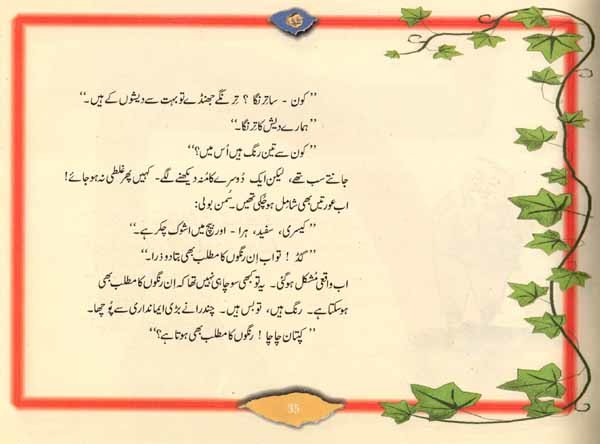 ”کون - سا ترنگا ؟ تِرنگے جھنڈے تو بہت سے دیشوں کے ہیں۔“
”ہمارے دیش کا ترنگا۔“
”کون سے تین رنگ ہیں اُس میں؟“
جانتے سب تھے، لیکن ایک دُوسرے کا مُنہ دیکھنے لگے- کہیں پھر غلطی نہ ہو جائے!
اب عورتیں بھی شامل ہو چُکی تھیں۔ سُمن بولی:
”کیسری، سفید، ہرا - اور بیچ میں اشوک چکر ہے۔“
”گُڈ! تو اب اِن رنگوں کا مطلب بھی بتا دو ذرا۔“
اب واقعی مُشکل ہو گئی۔ یہ تو کبھی سوچا ہی نہیں تھا کہ اِن رنگوں کا مطلب بھی
ہو سکتا ہے۔ رنگ ہیں، تو بس ہیں۔ چندر نے بڑی ایمانداری سے پُوچھا۔
”کپتان چاچا! رنگوں کا مطلب بھی ہوتا ہے؟“
35